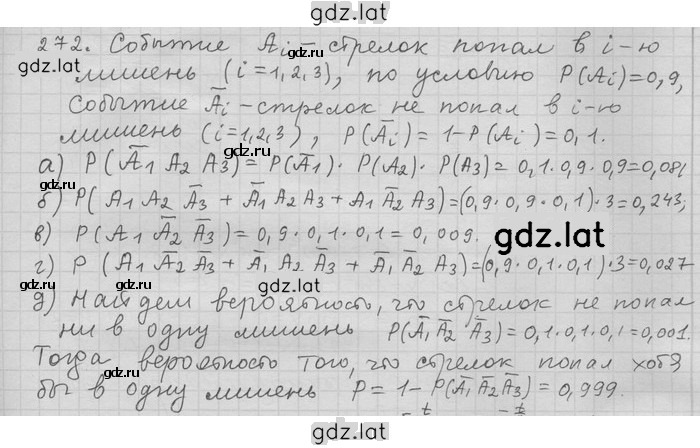 gdz.lat
272. Событие Aᵢ – стрелок попал в i-ю
gdz.lat
gdz.lat
мишень (i=1,2,3), по условию P(Aᵢ)=0,9,
событие A̅ᵢ - стрелок не попал в i-ю
мишень (i=1,2,3), P(A̅ᵢ)= 1-P(Aᵢ)=0,1.
gdz.lat
а) P(A̅₁ A₂ A₃)= P(A̅₁)· P(A₂)· P(A₃)= 0,1·0,9·0,9=0,081
б) P( A₁ A₂ A̅₃ + A̅₁ A₂ A₃ + A₁ A̅₂ A₃)=(0,9·0,9·0,1)·3=0,243;
gdz.lat
в) P(A₁ A̅₂ A̅₃)= 0,9·0,1·0,1=0,009.
gdz.lat
г) P (A₁ A̅₂ A̅₃ + A̅₁ A₂ A̅₃ + A̅₁ A̅₂ A₃)=(0,9·0,1·0,1)·3=0,027
gdz.lat
д) Найдем вероятность, что стрелок не попал
ни в одну мишень P(A̅₁ A̅₂ A̅₃)=0,1·0,1·0,1=0,001.
gdz.lat
Тогда вероятность того, что стрелок попал хотя
бы в одну мишень P= 1- P(A̅₁ A̅₂ A̅₃)=0,999.
gdz.lat
gdz.lat
gdz.lat